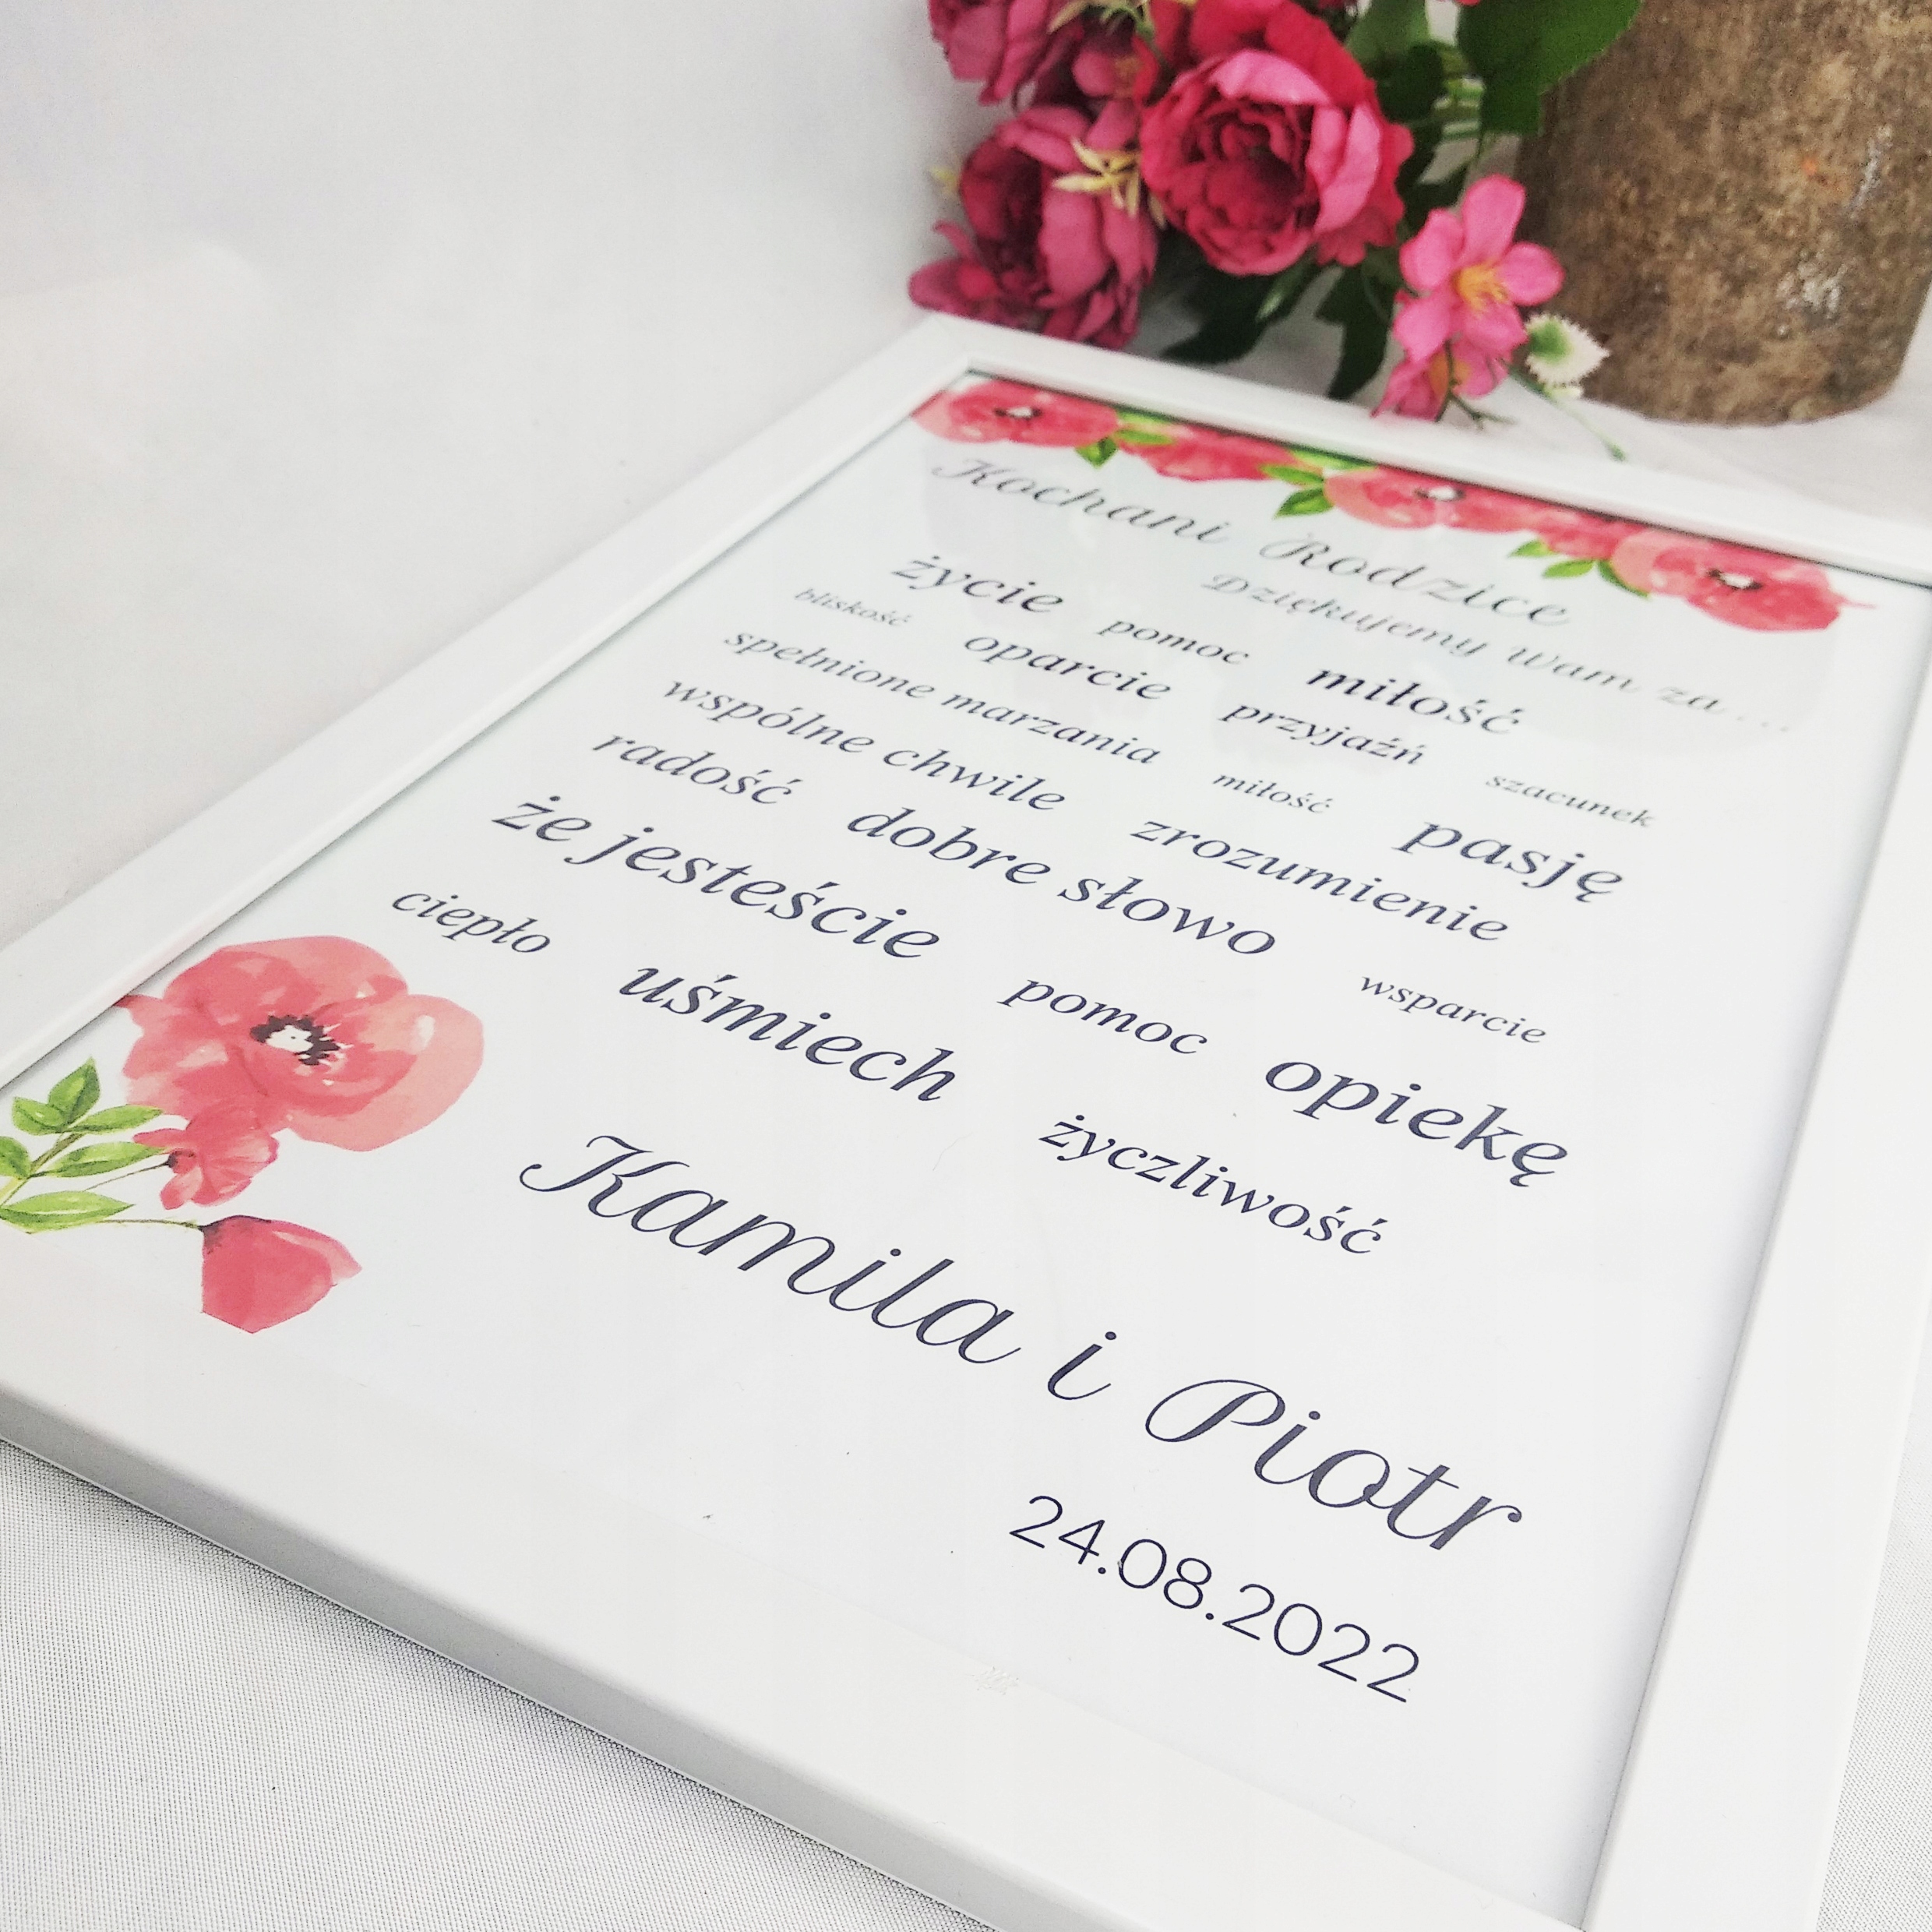 Kochani Rodzice
Dziękujemy Wam za...
życie pomoc miłość
bliskość oparcie przyjaźń szacunek
spełnione marzania miłość pasję
wspólne chwile zrozumienie
radość dobre słowo wsparcie
że jesteście pomoc opiekę
ciepło uśmiech życzliwość
Kamila i Piotr
24.08.2022